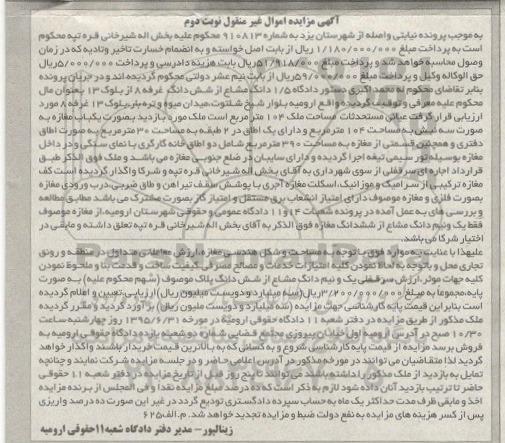 آگهی مزایده اموال غیر منقول نوبت دوم
به موجب پرونده نیابتی واصله از شهرستان یزد به شماره ۹۱۰۸۱۳ محکوم علیه بخش اله شیرخانی قره تپه محکوم
است به پرداخت مبلغ ۱/۱۸۰/۰۰۰/۰۰۰ ریال از بابت اصل خواسته و به انضمام خسارت تاخیر وتادیه که در زمان
وصول محاسبه خواهد شد و پرداخت مبلغ ۵۱/۹۱۸/۰۰۰ریال بابت هزینه دادرسی و پرداخت ۵/۰۰۰/۰۰۰ریال
حق الوکاله وکیل و پرداخت مبلغ ۵۹/۰۰۰/۰۰۰ریال از بابت نیم عشر دولتی محکوم گردیده اند و در جریان پرونده
بنابر تقاضای محکوم له محمد اکبری دستور دادگاه ۱/۵ دانگ مشاع از شش دانگ غرفه ۸ از بلوک ۱۳ بعنوان مال
محکوم علیه معرفی و توقیف گردیده واقع ارومیه بلوار شیخ شلتوت،میدان میوه و تره بار،بلوک ۱۳ غرفه ۸ مورد
ارزیابی قرار گرفت عیانی مستحدثات مساحت ملک ۱۰۴ متر مربع است ملک مورد بازدید بصورت یکباب مغازه به
صورت سه نبش به مساحت ۱۰۴ مترمربع و دارای یک اطاق در ۲ طبقه به مساحت ۳۰ مترمربع به صورت اطاق
دفتری و همچنین قسمتی از مغازه به مساحت ۳۹۰ مترمربع شامل دو اطاق خانه کارگری با نمای سنگی و در داخل
مغازه بوسیله تور سیمی تیغه اجرا گردیده و دارای سایبان در ضلع جنوبی مغازه می باشد و ملک فوق الذکر طبق
قرارداد اجاره ای سرقفلی از سوی شهرداری به آقای بخش اله شیرخانی قره تپه و شرکا واگذار گردیده است کف
مغازه ترکیبی از سرامیک و موزائیک،اسکلت مغازه آجری با پوشش سقف تیرآهن و طاق ضربی،درب ورودی مغازه
بصورت فلزی و مغازه موصوف دارای امتیاز انشعاب برق مستقل و امتیاز گاز بصورت مشترک می باشد مطابق مطالعه
و بررسی های به عمل آمده در پرونده شعبات ۱۴و۱۱ دادگاه عمومی و حقوقی شهرستان ارومیه،از مغازه موصوف
فقط یک ونیم دانگ مشاع از ششدانگ مغازه فوق الذکر به آقای بخش اله شیرخانی قره تپه تعلق داشته و مابقی در
اختیار شرکا می باشد.
علیهذا با عنایت به موارد فوق با توجه به مساحت و شکل هندسی مغازه، ارزش معاملاتی متداول در منطقه و رونق
تجاری محل و باتوجه به لحاظ نمودن کلیه امتیازات خدمات و مصالح مصرفی کیفیت ساخت و قدمت بنا و ملحوظ نمودن
کلیه جهات موثر،ارزش سرقفلی یک و نیم دانگ مشاع از شش دانگ پلاک موصوف (سهم محکوم علیه) به صورت
پایه،مجموعا به مبلغ ۳/۲۰۰/۰۰۰/۰۰۰ریال(سه میلیارد و دویست میلیون ریال) ارزیابی،تعیین و اعلام گردیده
است بنابر این قیمت پایه کارشناسی جهت مزایده (سه میلیارد و دویست ملیون ریال) برآورد گردید و مقرر گردیده
ملک مذکور از طریق مزایده در دفتر شعبه ۱۱ دادگاه حقوقی ارومیه در مورخه ۱۳۹۵/۶/۳۱ روز چهارشنبه ساعت
۱۰/۳۰ صبح در آدرس ارومیه اول خیابان پیروزی مجتمع قضایی شماره دو شعبه یازده دادگاه حقوقی ارومیه به
فروش برسد مزایده از قیمت پایه کارشناسی شروع و به کسانی که به بالاترین قیمت خریدار باشند واگذار خواهد
گردید لذا متقاضیان می توانند در مورخه مذکور در آدرس اعلامی حاضر و در جلسه مزایده شرکت نمایند و چنانچه
تمایل به بازدید از ملک مذکور را داشته باشند می توانند تا پنج روز قبل از تاریخ مزایده در دفتر شعبه ۱۱ حقوقی
حاضر تا ترتیب بازدید آنان داده شود لازم به ذکر است که ده درصد مبلغ مزایده نقدا و فی المجلس از برنده مزایده
اخذ و مابقی ظرف مدت حداکثر یک ماه به حساب سپرده دادگستری تودیع گردد در غیر این صورت ده درصد واریزی
پس از کسر هزینه های مزایده به نفع دولت ضبط و مزایده تجدید خواهد شد.م.الف۶۲۵
زینالپور- مدیر دفتر دادگاه شعبه۱۱حقوقی ارومیه